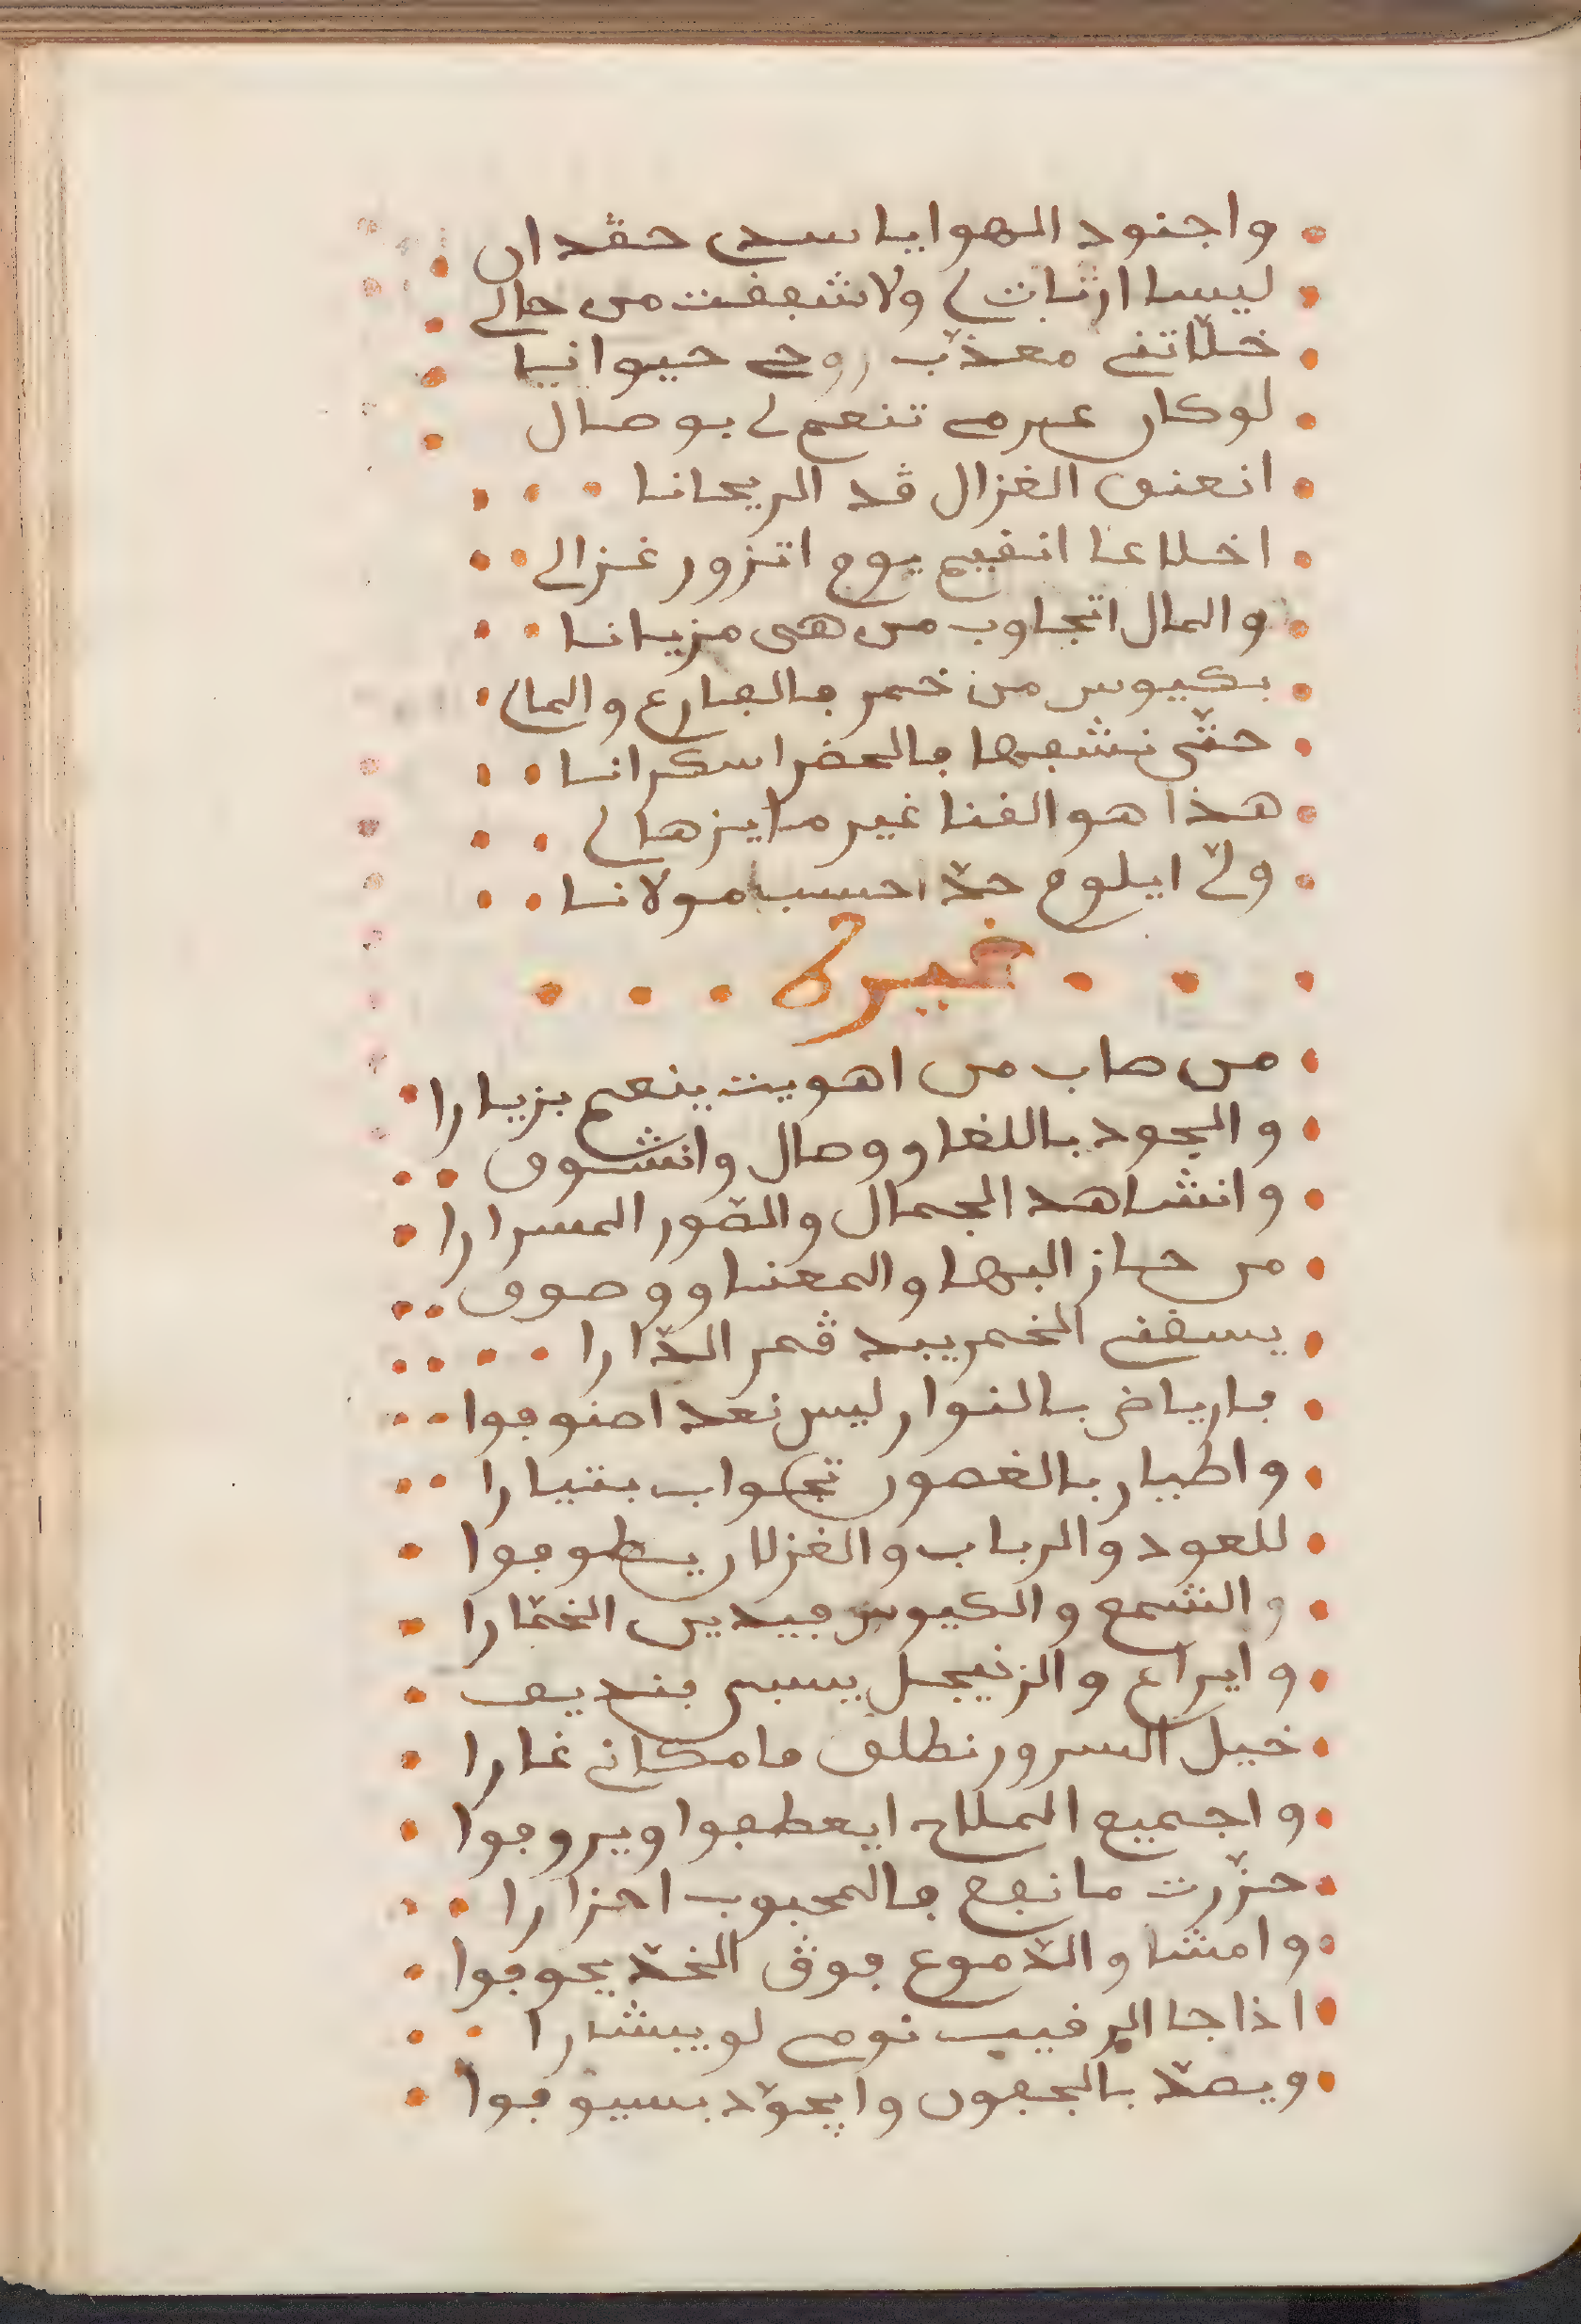 واجنود الهوا يا سدي حڨدان
ليسا ارثات لي ولا شفقت من حالي
خلّاتني معذّب روحي حيوانيا
لو كان عمرمي تنعم لي بوصال
انعنق الغزال ڨد الريحانا
اخلاعا انقيم يوم اتزور غزالي
والمال اتجاوب من هي مزيانا
بكيوس من خمر فالفارغ والمالي
حتّى نشبعها فالحضرا سكرانا
هذا هو الغنا غير ما يزهالي
ولّي ايلوم حدّ احسب مولانا
غيره
من صاب من اهويت ينعم بزيارا
والجود باللغا ووصال وانشوق
وانشاهد الجمال والصّور المسرارا
من حاز البها والمعنا ووصوف
يسقني الخمر بيد ڨمر الدّارا
فارياض بالنوار ليس نعد اصنوفوا
واطيار بالغصون تجواب بتيارا
للعود والرباب والغزلان يطوفوا
والشمع والكيوس فيدين الخمّارا
وايراع والزنيجل يسبي بنديف
خيل السرور نطلق فامكاني غارا
واجميع الملاح ايعطفوا ويروفوا
حزّرت ما نفع فالمحبوب احزارا
وامشا والدّموع فوڨ الخدّ يحوفوا
اذا جا الرقيب نومي لو بيشارا
ويصدّ بالجفون وايجوّد بسيوفوا